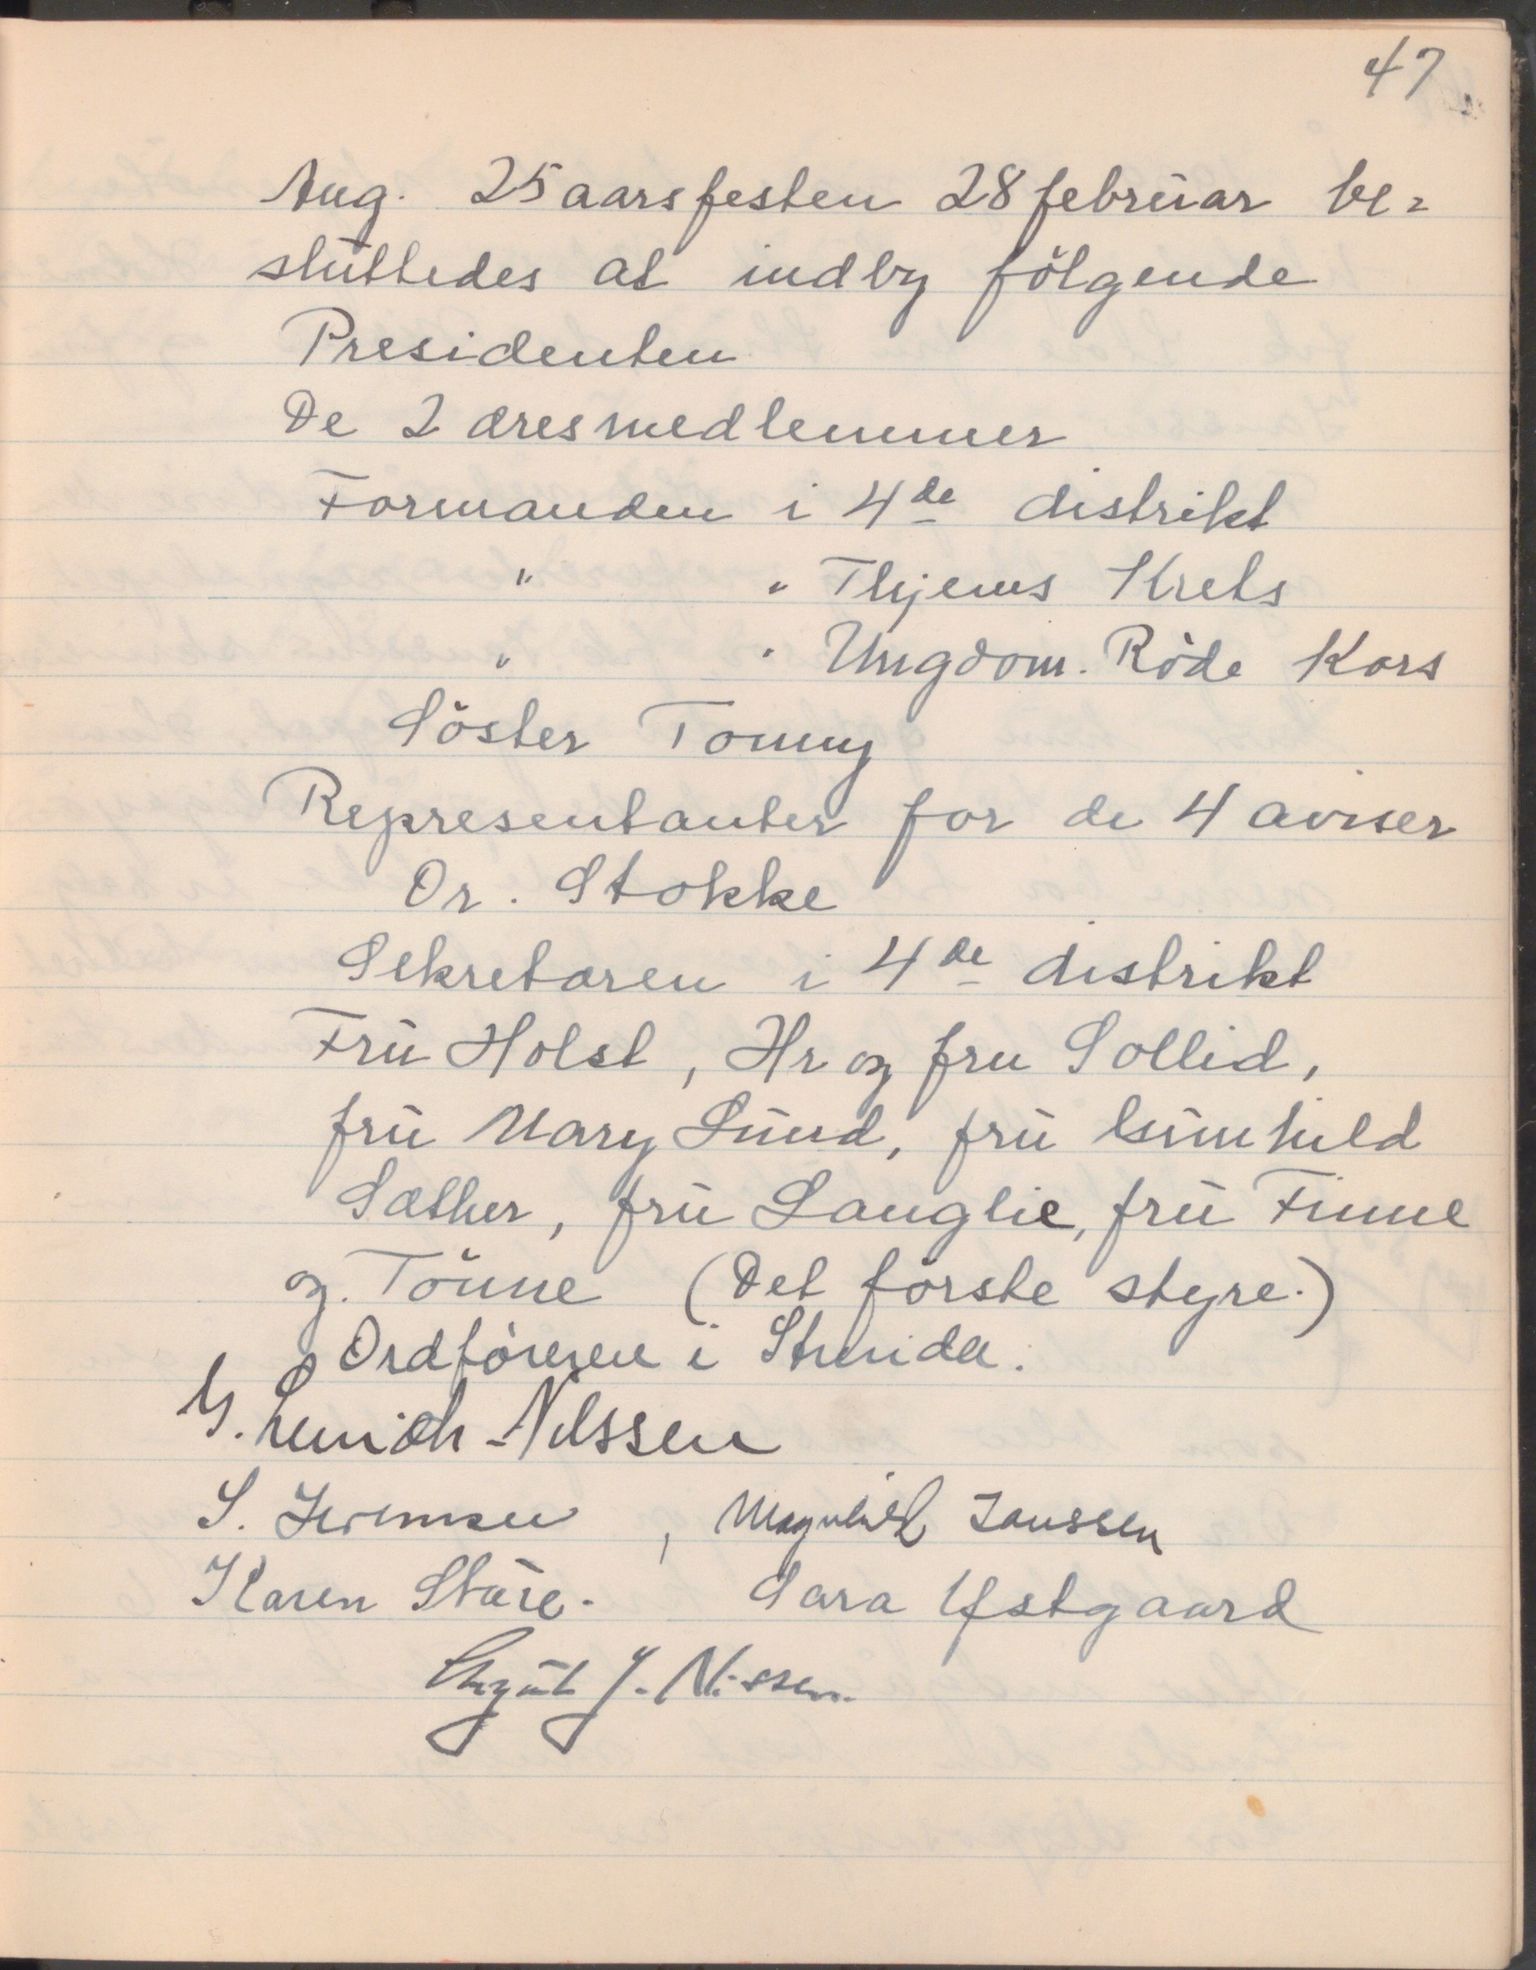 47
Ang. 25 aarsfesten 28 februar be=
sluttedes at indby følgende
Presidenten
De 2 æresmedlemmer
Formanden i 4de distrikt
" " Thjems Krets
" " Ungdom. Røde Kors
Søster Tommy
Representanter for de 4 aviser
Dr. Stokke
Sekretæren i 4de distrikt
Fru Holst, Hr og fru Sollid,
fru Mary Lund, fru Gunhild
Sæther, fru Langlie, fru Finne
og Tønne (Det første styre.)
Ordføreren i Strinda.
Lenich-Nilssen
S. , Magnhild Janssen
Karen Støre. Sara Ystgaard
J. Nissen.